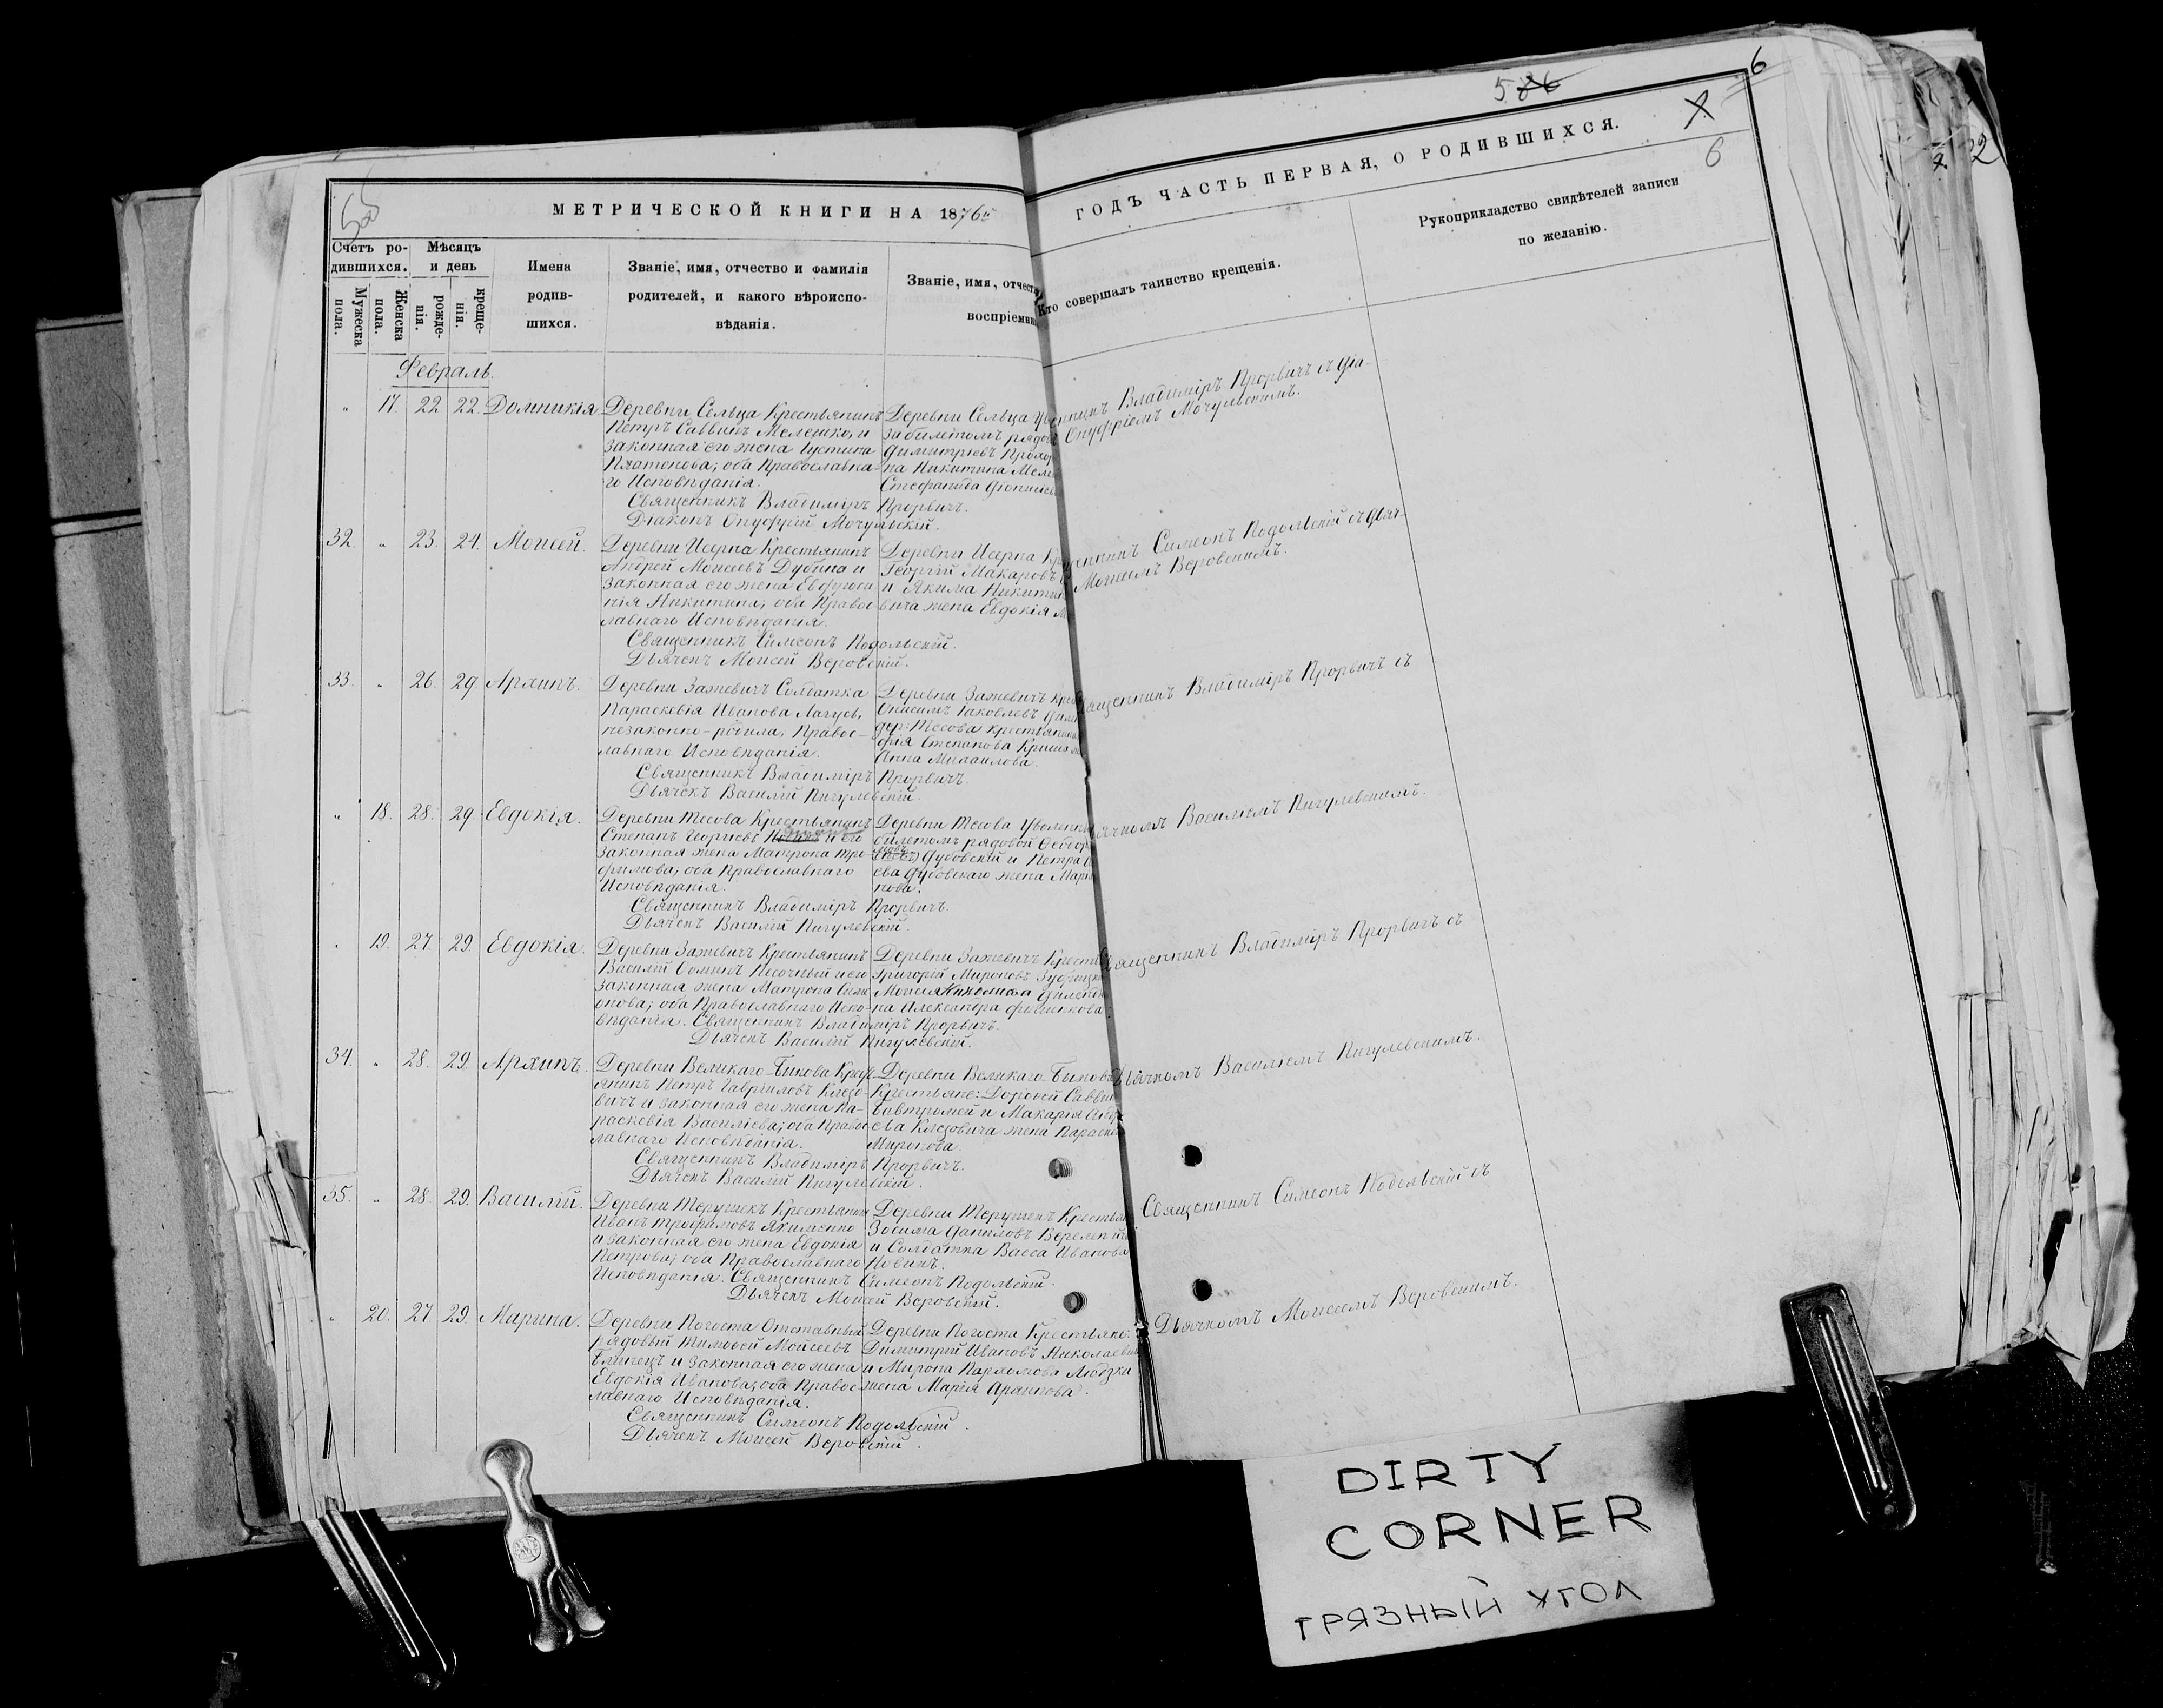 586
6
X
6
2
МЕТРИЧЕСКОЙ КНИГИ НА 1876й
ГОДЪ ЧАСТЬ ПЕРВАЯ, О РОДИВШИХСЯ.
Счетъ ро-
дившихся.
Мужеска
пола.
Женска
пола.
Мѣсяцъ
и день
рожде-
нія.
креще-
нія.
Имена
родив-
шихся.
Званіе, имя, отчество и фамилія
родителей, и какого вѣроиспо-
вѣданія.
Званіе, имя, отчест
воспріемни
Кто совершалъ таинство крещенія.
Рукоприкладство свидѣтелей записи
по желанію.
Февраль.
" 17. 22 22. Домникія.
Деревни Сельца Крестьянинъ
Петръ Саввинъ Мелешко, и
законная его жена Іустина
Платонова; оба Православна-
го Исповѣданія.
Священникъ Владиміръ Прорвичъ.
Діаконъ Онуфрій Мочульскій.
Деревни Сельца
за билетомъ рядов
Димитріевъ Прохор
на Никитина Меле
Стефанида Діонисіев
Владиміръ Прорвичъ съ Діа-
Онуфріемъ Мочульскимъ.
32. " 23. 24. Моисей.
Деревни Исерна Крестьянинъ
Андрей Моисеевъ Дубина и
законная его жена Евфроси
нія Никитина; оба Правос-
лавнаго Исповѣданія.
Священникъ Симеонъ Подольскій.
Дьячекъ Моисей Веровскій.
Деревни Исерна Кр
Георгій Макаровъ
и Якима Никити
вича жена Евдокія
Симеонъ Подольскій съ Дьяч-
Моисеемъ Веровскимъ.
33. " 26. 29. Архипъ.
Деревни Зажевичъ Солдатка
Параскевія Иванова Лагусь,
незаконно-родила, Правос-
лавнаго Исповѣданія.
Священникъ Владиміръ Прорвичъ.
Дьячекъ Василій Пигулевскій.
Деревни Зажевичъ Крес
Онисимъ Іаковлевъ
дер: Тесова крестьянин
Степанова
Анна Михаилова.
Владиміръ Прорвичъ съ
" 18. 28. 29. Евдокія.
Деревни Тесова Крестьянинъ
Степанъ Георгіевъ и его
законная жена Матрона Тро-
фимова; оба Православнаго
Исповѣданія.
Священникъ Владиміръ Прорвичъ.
Дьячекъ Василій Пигулевскій.
Деревни Тесова Уволен
билетомъ рядовой Феодор
Дубовскій и Петра
ева Дубовскаго жена Мари
нова.
Василіемъ Пигулевскимъ.
" 19. 27. 29. Евдокія.
Деревни Зажевичъ Крестьянинъ
Василій Фоминъ Песочный и его
законная жена Матрона Симе
онова; оба Православнаго Испо-
вѣданія. Священникъ Владиміръ Прорвичъ.
Дьячекъ Василій Пигулевскій.
Деревни Зажевичъ Крест
Григорій Мироновъ
Моисея
на Александра
Владиміръ Прорвичъ съ
34. " 28. 29. Архипъ.
Деревни Великаго-Быкова Крест-
янинъ Петръ Гавріиловъ Клезо-
вичъ и законная его жена Па-
раскевія Василіева; оба Правос-
лавнаго Исповѣданія.
Священникъ Владиміръ Прорвичъ.
Дьячекъ Василій Пигулевскій.
Деревни Великаго-Быков
Крестьяне: Дорофей Саввин
и Макарія
ева Клезовича жена Параске
Миронова
Дьячкомъ Василіемъ Пигулевскимъ.
35. " 28. 29. Василій.
Деревни Терушекъ Крестьянин
Иванъ Трофимовъ Якименко
и законная его жена Евдокія
Петрова; оба Православнаго
Исповѣданія. Священникъ Симеонъ Подольскій.
Дьячекъ Моисей Веровскій.
Деревни Терушекъ Крестьян
Зосима Даниловъ
и Солдатка Васса Иванова
Новикъ.
Священникъ Симеонъ Подольскій съ
" 20. 27. 29. Марина.
Деревни Погоста Отставный
рядовый Тимофей Мойсеевъ
и законная его жена
Евдокія Иванова; оба Правос-
лавнаго Исповѣданія.
Священникъ Симеонъ Подольскій.
Дьячекъ Моисей Веровскій.
Деревни Погоста Крестьяне:
Димитрій Ивановъ Николаевич
и Мирона Пархомова Людзка
жена Марія Архипова.
Дьячкомъ Моисеемъ Веровскимъ.
DIRTY
CORNER
ГРЯЗНЫЙ УГОЛ